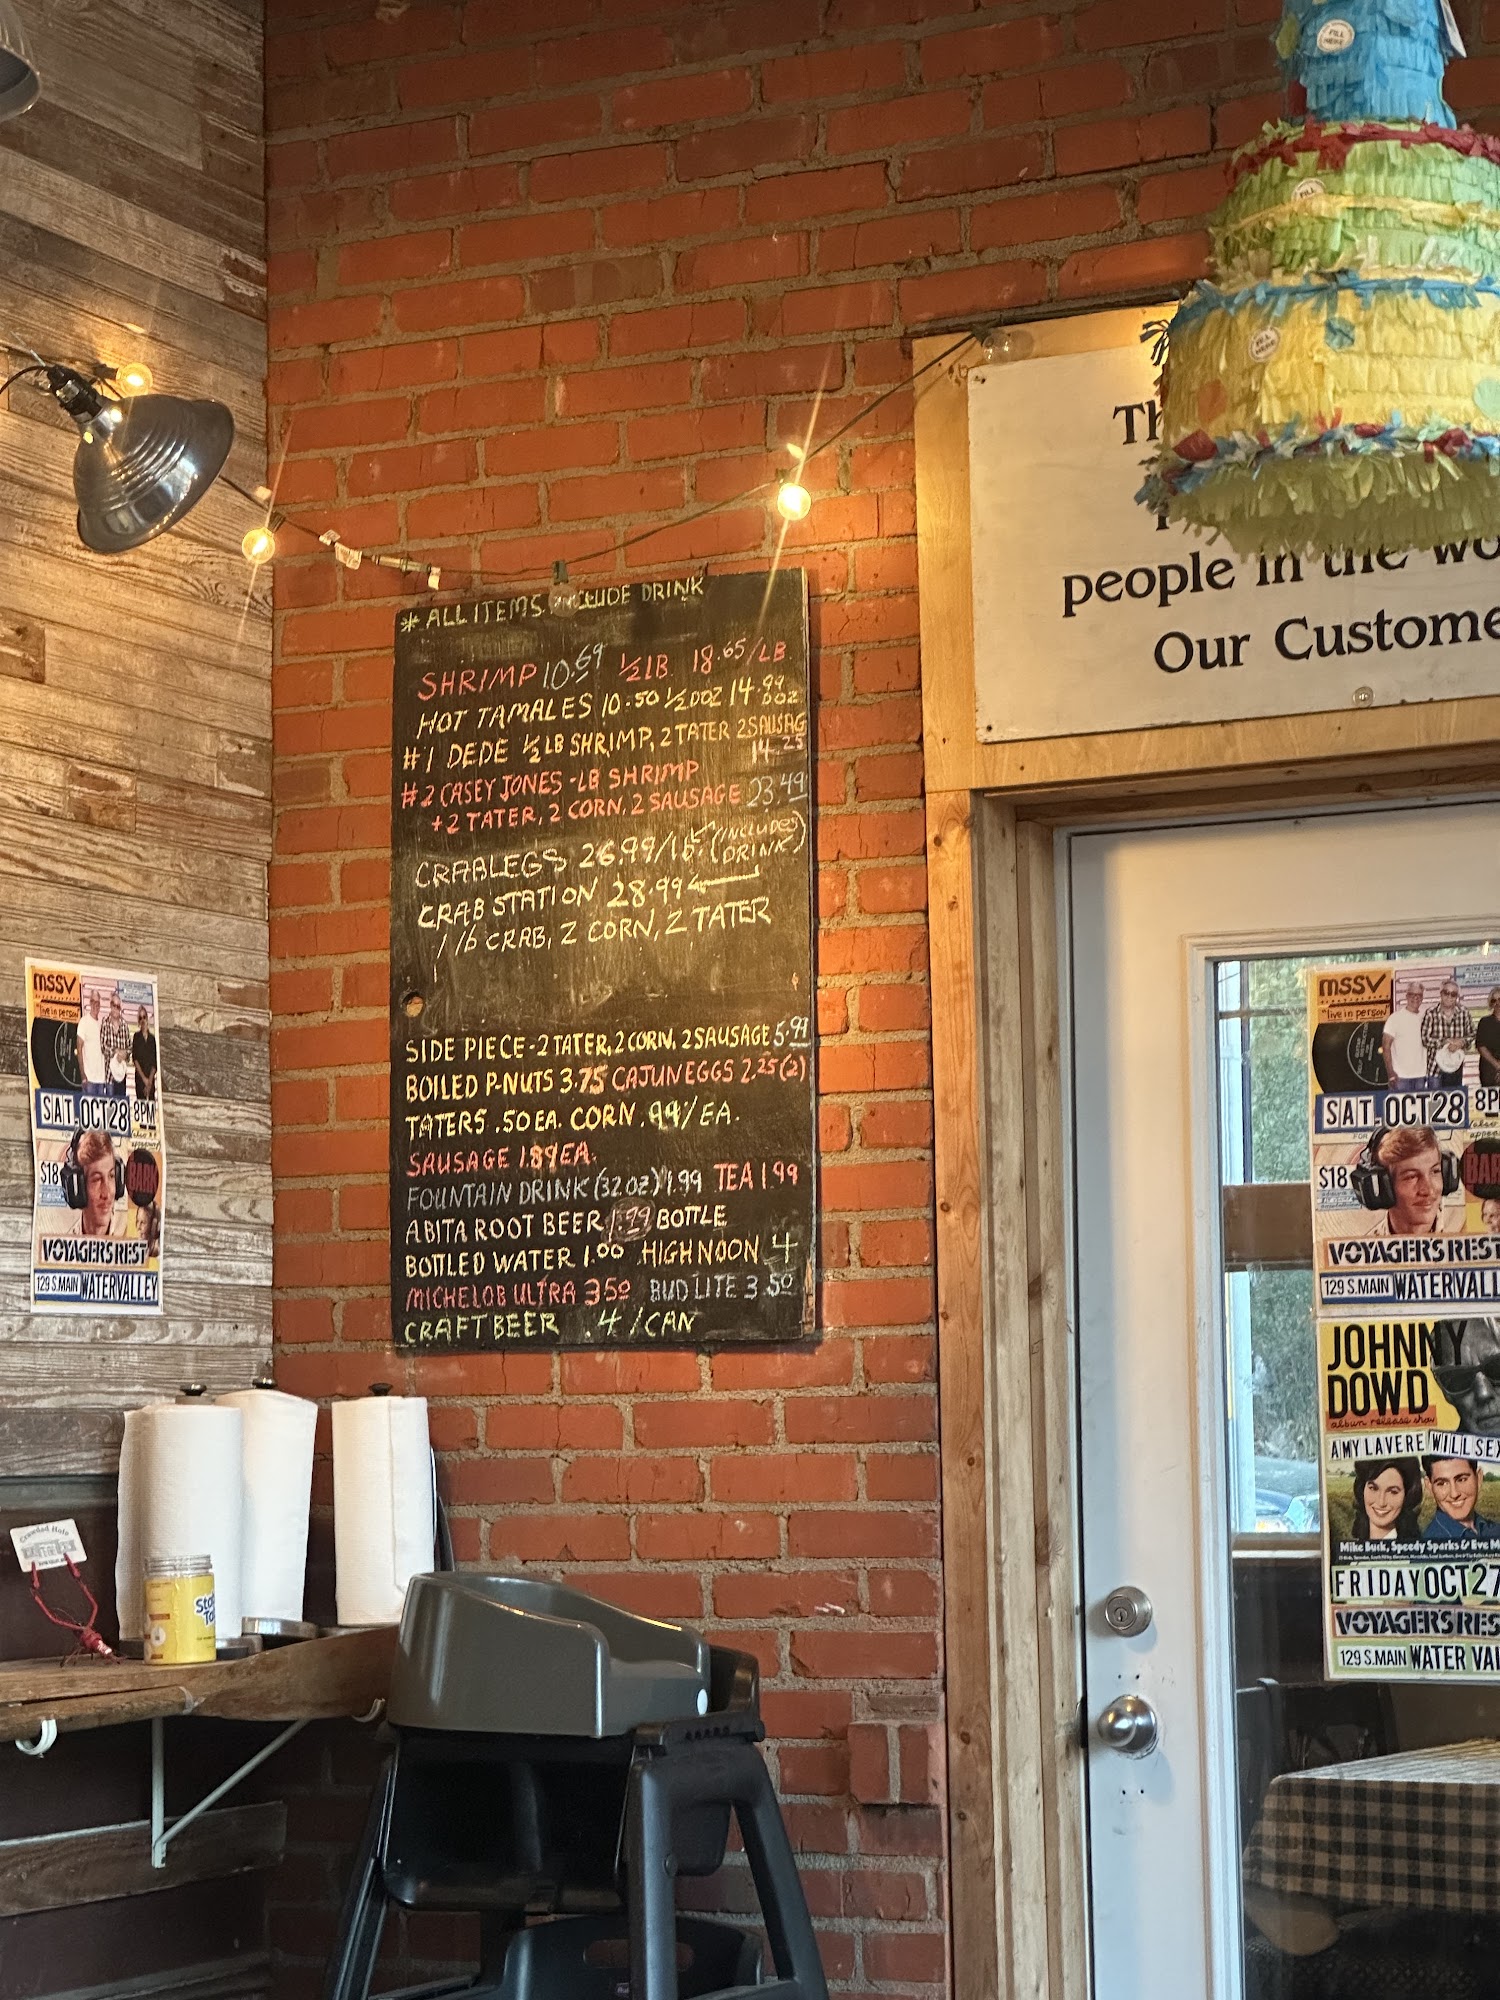 * ALL ITEMS INCLUDE DRINK
SHRIMP 10.69 ½ LB 18.65/LB
HOT TAMALES 10.50 ½ DOZ 14.99 DOZ
#1 DEDE ½ LB SHRIMP, 2 TATER 2 SAUSAG
14.25
#2 CASEY JONES -LB SHRIMP
+2 TATER, 2 CORN, 2 SAUSAGE 23.49
CRABLEGS 26.99/lb (INCLUDES DRINK)
CRAB STATION 28.99
1 lb CRAB, 2 CORN, 2 TATER
SIDE PIECE - 2 TATER, 2 CORN, 2 SAUSAGE 5.99
BOILED P-NUTS 3.75 CAJUN EGGS 2.25 (2)
TATERS .50 EA. CORN .99/EA.
SAUSAGE 1.89 EA.
FOUNTAIN DRINK (32 OZ) 1.99 TEA 1.99
ABITA ROOT BEER 1.99 BOTTLE
BOTTLED WATER 1.00 HIGH NOON 4
MICHELOB ULTRA 3.50 BUD LITE 3.50
CRAFT BEER .4 / CAN
Th
people in the wo
Our Custome
FILL HERE
FILL
FILL HERE
MSSV
"live in person"
SAT. OCT 28 8PM
$18
BARN
VOYAGER'S REST
129 S. MAIN WATER VALLEY
MSSV
"live in person"
SAT. OCT 28 8P
$18
BAR
VOYAGER'S REST
129 S. MAIN WATER VALL
JOHNNY
DOWD
album release show
AMY LAVERE WILL SEX
Mike Buck, Speedy Sparks & Eve M
FRIDAY OCT 27
VOYAGER'S RES
129 S. MAIN WATER VAL
Crawdad Hole